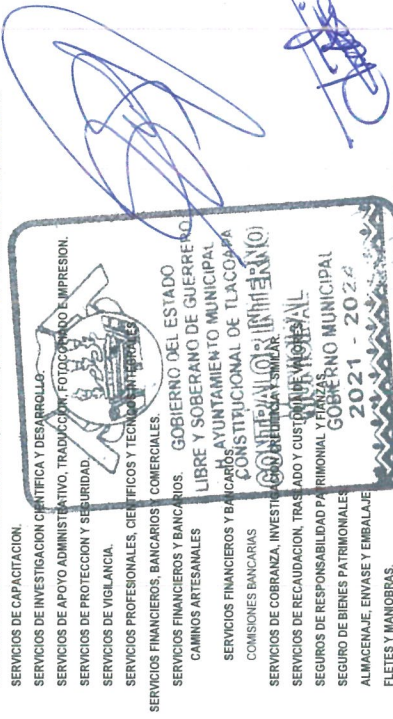 SERVICIOS DE CAPACITACION.
SERVICIOS DE INVESTIGACION CIENTIFICA Y DESARROLLO.
SERVICIOS DE APOYO ADMINISTRATIVO, TRADUCCION, FOTOCOPIADO E IMPRESION.
SERVICIOS DE PROTECCION Y SEGURIDAD.
SERVICIOS DE VIGILANCIA.
SERVICIOS PROFESIONALES, CIENTIFICOS Y TECNICOS INTEGRALES.
SERVICIOS FINANCIEROS, BANCARIOS Y COMERCIALES.
SERVICIOS FINANCIEROS Y BANCARIOS.
CAMINOS ARTESANALES
SERVICIOS FINANCIEROS Y BANCARIOS.
COMISIONES BANCARIAS
SERVICIOS DE COBRANZA, INVESTIGACION CREDITICIA Y SIMILAR.
SERVICIOS DE RECAUDACION, TRASLADO Y CUSTODIA DE VALORES.
SEGUROS DE RESPONSABILIDAD PATRIMONIAL Y FIANZAS.
SEGURO DE BIENES PATRIMONIALES.
ALMACENAJE, ENVASE Y EMBALAJE.
FLETES Y MANIOBRAS.
GOBIERNO DEL ESTADO
LIBRE Y SOBERANO DE GUERRERO
H. AYUNTAMIENTO MUNICIPAL
CONSTITUCIONAL DE TLACOAPA
CONTRALOR INTERNO
GOBIERNO MUNICIPAL
2021 - 2024